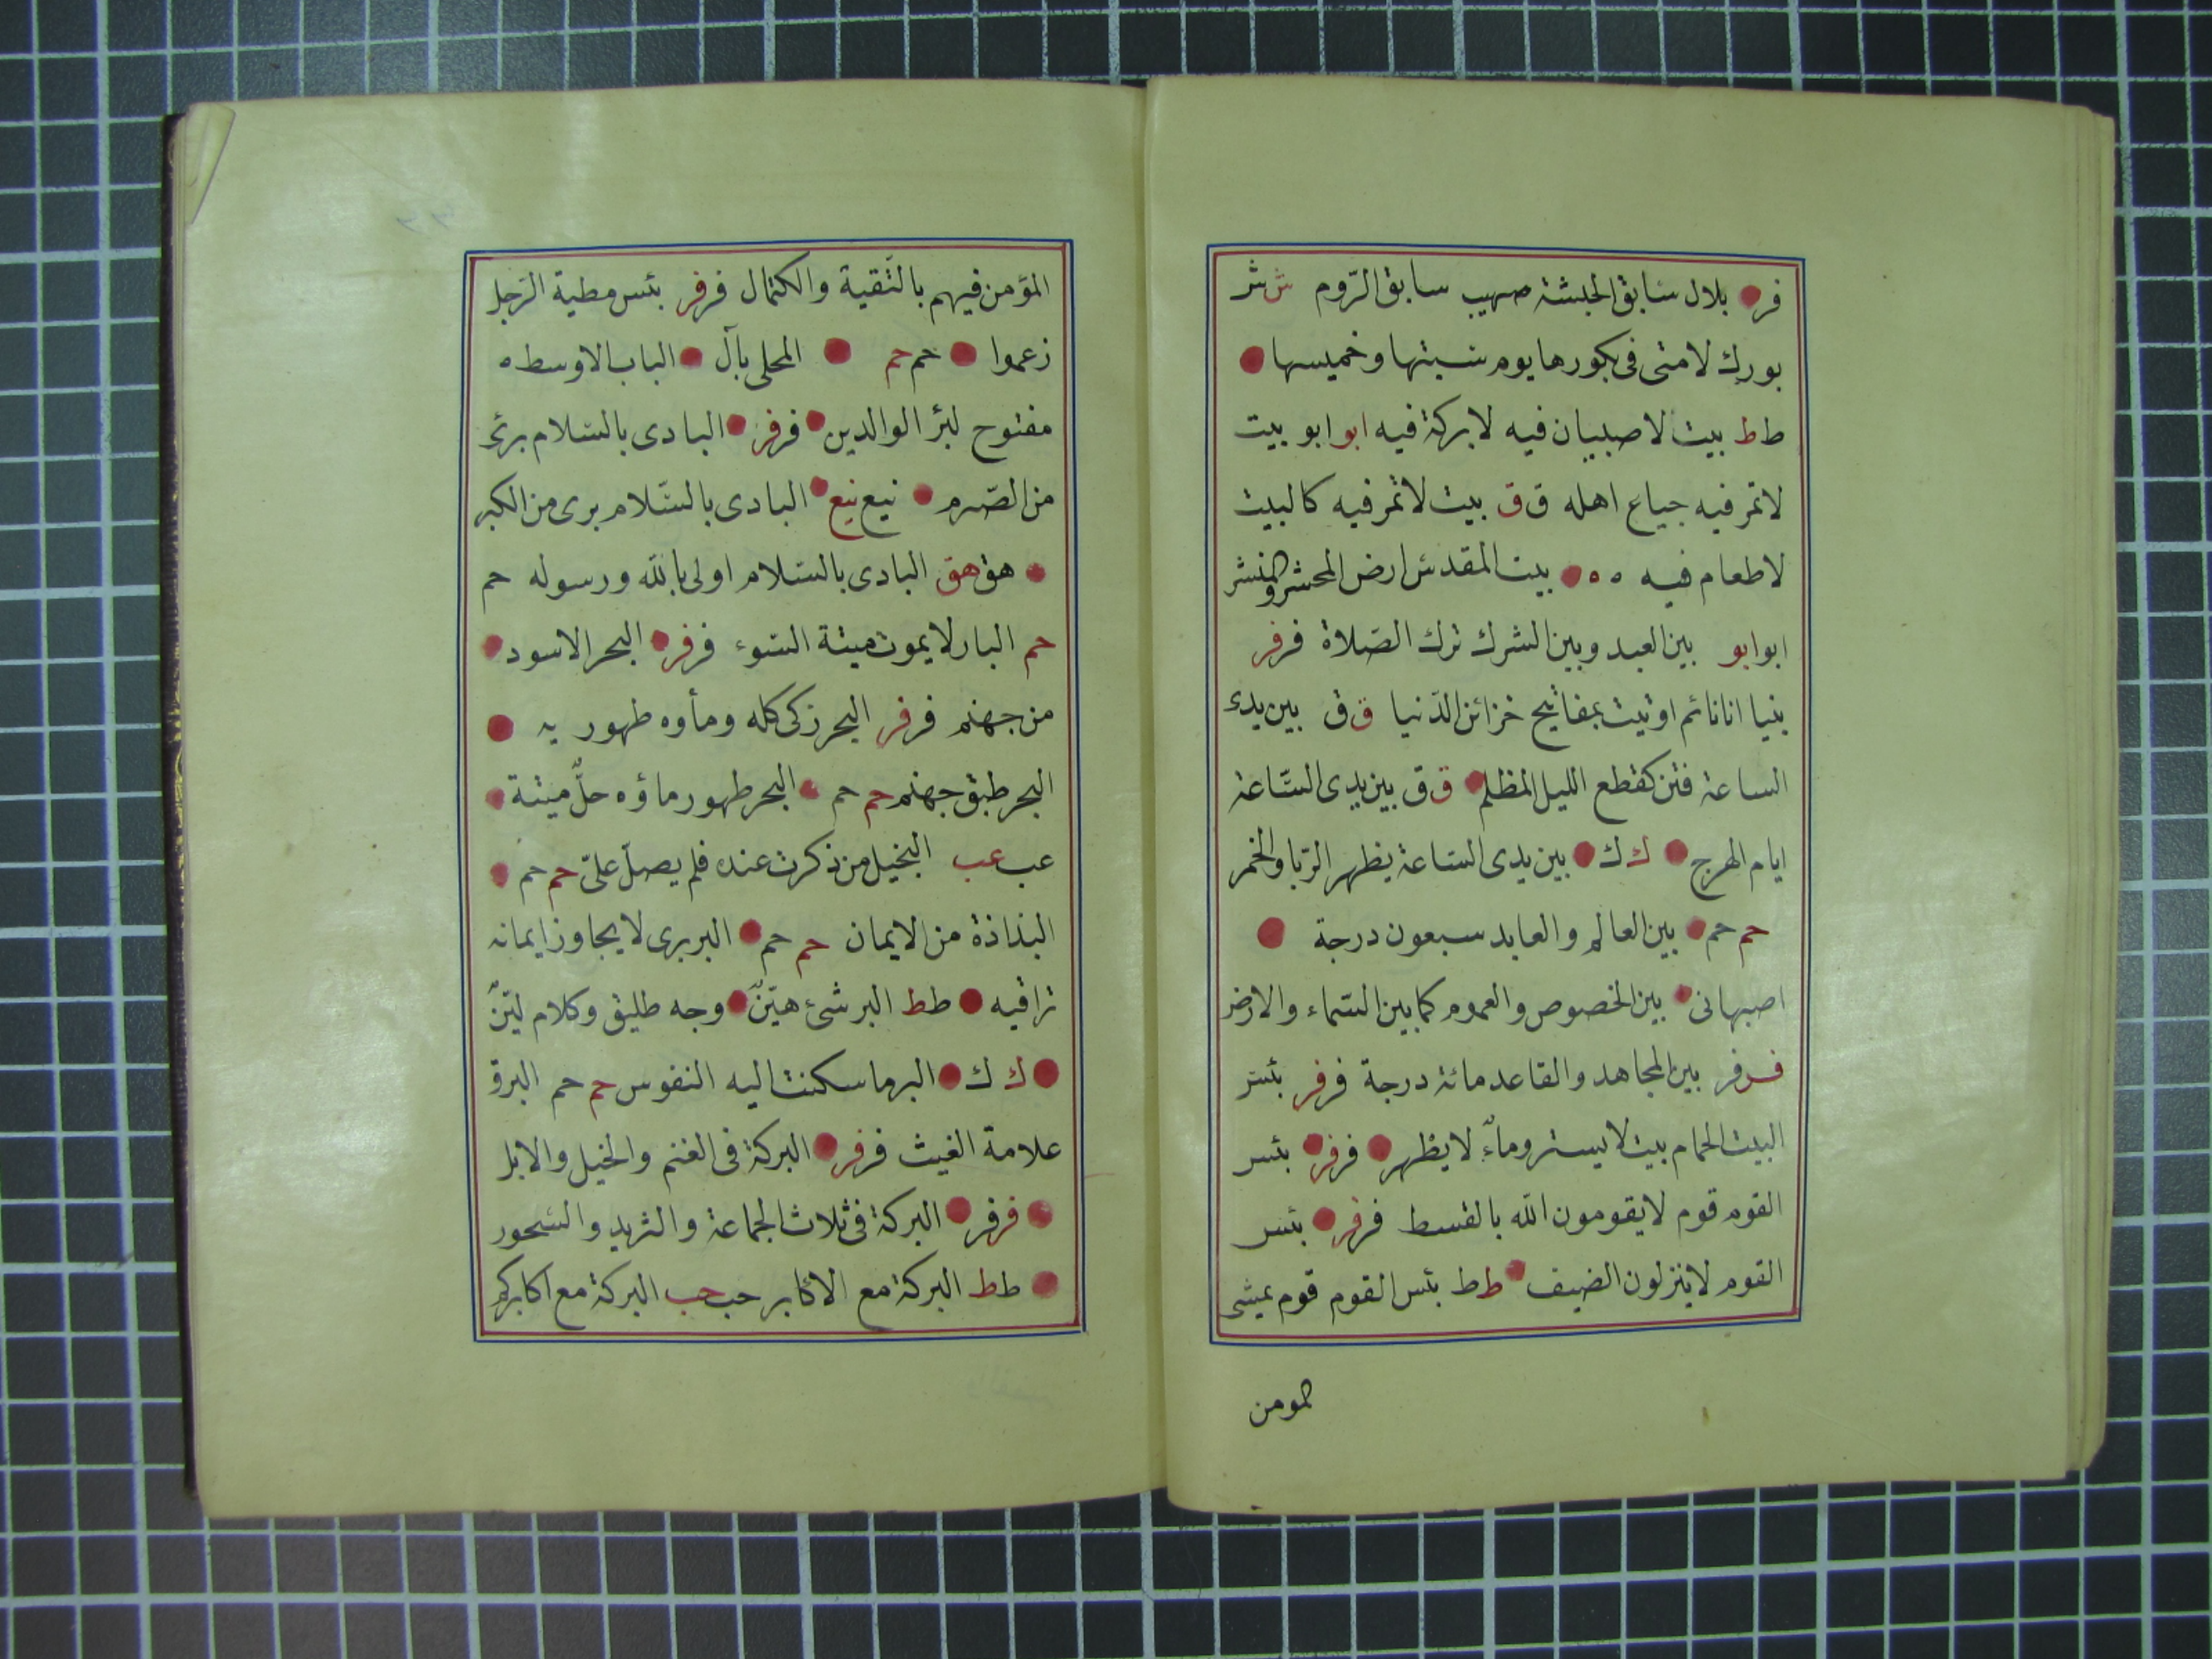 فر بلال سابق الحبشة صهيب سابق الروم ش ش
بورك لامتى فى بكورها يوم سبتها وخميسها
ط ط بيت لا صبيان فيه لا بركة فيه ابو ابو بيت
لا تمر فيه جياع اهله ق ق بيت لا تمر فيه كالبيت
لا طعام فيه ه ه بيت المقدس ارض المحشر والمنشر
ابو ابو بين العبد وبين الشرك ترك الصّلاة فر فر
بنيا انا نائم اوتيت بمفاتيح خزائن الدّنيا ق ق بين يدى
الساعة فتن كقطع الليل المظلم ق ق بين يدى السّاعة
ايام الهرج ك ك بين يدى الساعة يظهر الرّبا والخمر
حم حم بين العالم والعابد سبعون درجة
اصبهانى بين الخصوص والعموم كما بين السّماء والارض
فر فر بين المجاهد والقاعد مائة درجة فر فر بئس
البيت الحمام بيت لا يستر وماءٌ لا يظهر فر فر بئس
القوم قوم لا يقومون الله بالقسط فر فر بئس
القوم لا ينزلون الضيف ط ط بئس القوم قوم يمشى
المومن
المؤمن فيهم بالتّقية والكتمال فر فر بئس مطية الرّجل
زعموا حم حم المحلى بآل الباب الاوسط ه
مفتوح لبرّ الوالدين فر فر البادى بالسّلام برئ
من الصّرم نيع نيع البادى بالسّلام برى من الكبر
هق هق البادى بالسّلام اولى بالله ورسوله حم
حم البار لا يموت ميتة السّوء فر فر البحر الاسود
من جهنم فر فر البحر زكى كله ومأوه طهور يه
البحر طبق جهنم حم حم البحر طهور ماؤه حلّ ميتة
عب عب البخيل من ذكرت عنده فلم يصلّ علىّ حم حم
البذاذة من الايمان حم حم البربرى لا يجاوز ايمانه
تراقيه ط ط البر شئ هيّنٌ وجه طليق وكلام ليّنٌ
ك ك البر ما سكنت اليه النفوس حم حم البرق
علامة الغيث فر فر البركة فى الغنم والخيل والابل
فر فر البركة فى ثلاث الجماعة والثريد والسّحور
ط ط البركة مع الاكابر حب حب البركة مع اكابركم